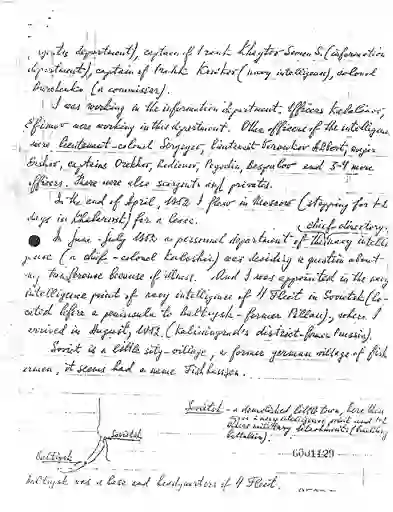 department), captain of I rank Khaytov Semen S. (information
department), captain of I rank (navy intelligence), colonel
(a commissar).
I was working in the information department. Officers
Efimov were working in this department. Other officers of the intelligence
were lieutenant-colonel Sergeyev, lieutenant Albert, major
captains Orekhov, Rodionov, Pogodin, and 3-4 more
officers. There were also sergeants and privates.
In the end of April, 1952 I flew in Moscow (stopping for 1-2
days in ) for a leave.
chief directory
In June-July 1952 a personnel department of the navy intelli-
gence (a chief - colonel ) was deciding a question about
my because of illness. And I was appointed in the navy
intelligence point of navy intelligence of 4 Fleet in Sovietsk (lo-
cated before a peninsula to Baltiysk - former Pillau), where I
arrived in August, 1952. (Kaliningrad's district-former Prussia).
Soviet is a little sity-village, a former german village of fish-
ermen, it seems had a name
Sovietsk - a demolished little town, here there
was a navy intelligence point and 1-2
other military detachments (
battalion).
Sovietsk
Baltiysk
Baltiysk was a base and headquarters of 4 Fleet.